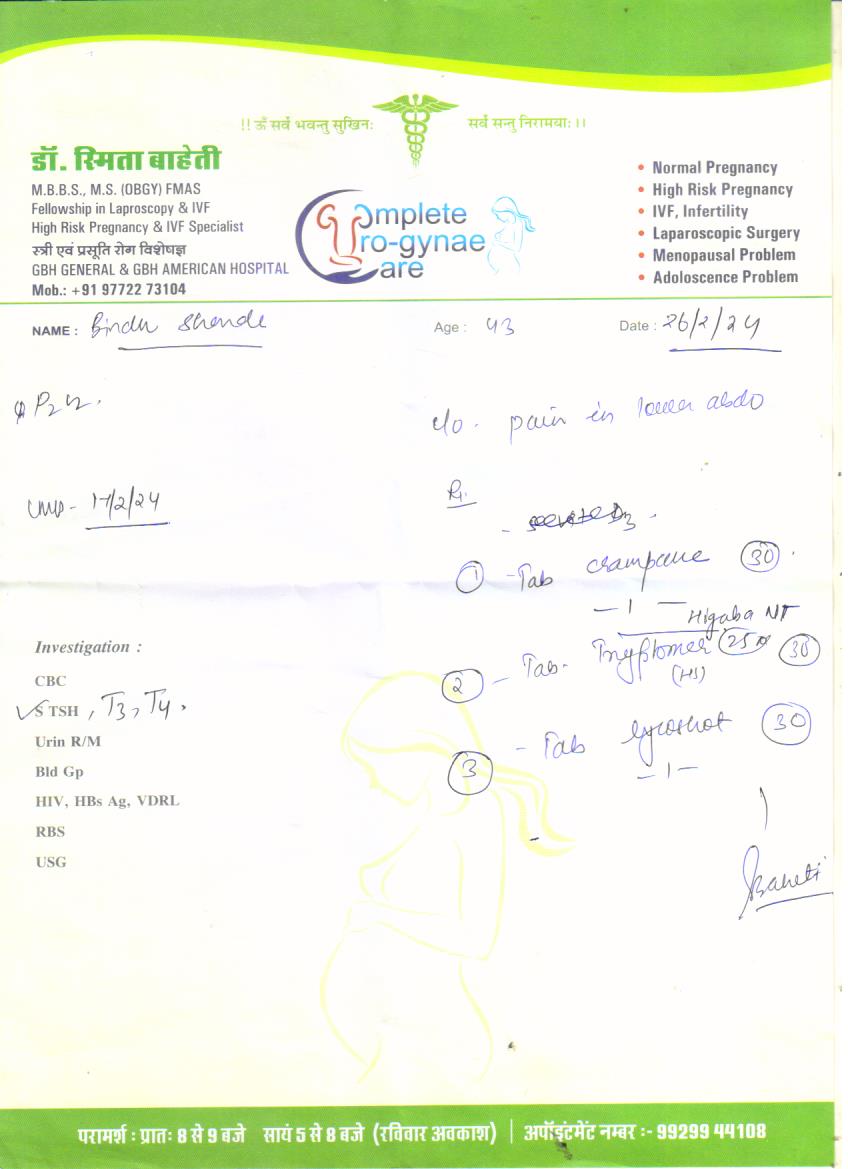 !! ॐ सर्वे भवन्तु सुखिनः सर्वे सन्तु निरामयाः ।।
डॉ. स्मिता बाहेती
M.B.B.S., M.S. (OBGY) FMAS
Fellowship in Laproscopy & IVF
High Risk Pregnancy & IVF Specialist
स्त्री एवं प्रसूति रोग विशेषज्ञ
GBH GENERAL & GBH AMERICAN HOSPITAL
Mob.: +91 97722 73104
Complete
Uro-gynae
Care
• Normal Pregnancy
• High Risk Pregnancy
• IVF, Infertility
• Laparoscopic Surgery
• Menopausal Problem
• Adoloscence Problem
NAME : Bindu Shende Age : 43 Date : 26/2/24
P2L2.
c/o. pain in lower abdo
LMP - 17/2/24
Rx.
① - Tab crampane 30
— 1 —
Higaba NT
② - Tab- Tryptomer 25 30
(HS)
③ - Tab lycoshot 30
— 1 —
Investigation :
CBC
✓S TSH , T3, T4.
Urin R/M
Bld Gp
HIV, HBs Ag, VDRL
RBS
USG
Baheti
परामर्श : प्रातः 8 से 9 बजे सायं 5 से 8 बजे (रविवार अवकाश) | अपॉइंटमेंट नम्बर :- 99299 44108